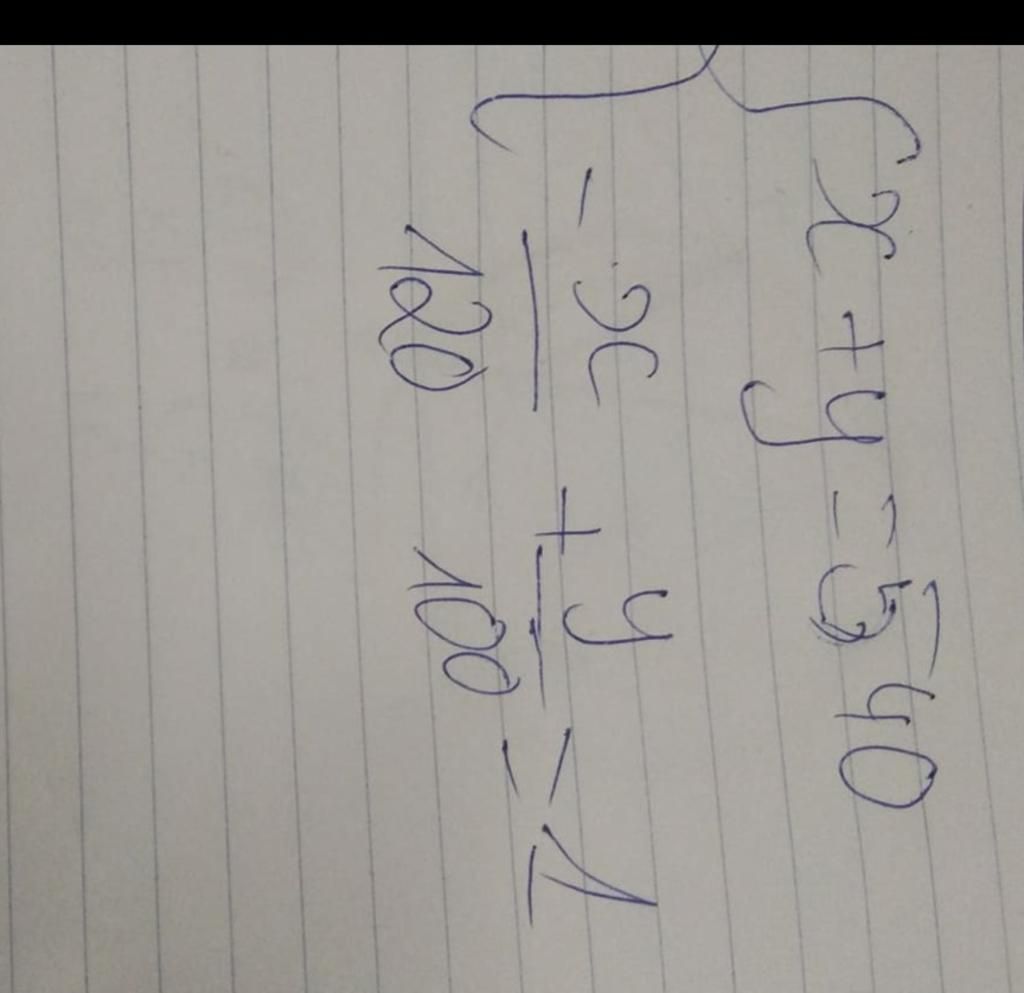 x + y = 540
-x/120 + y/100 = 1